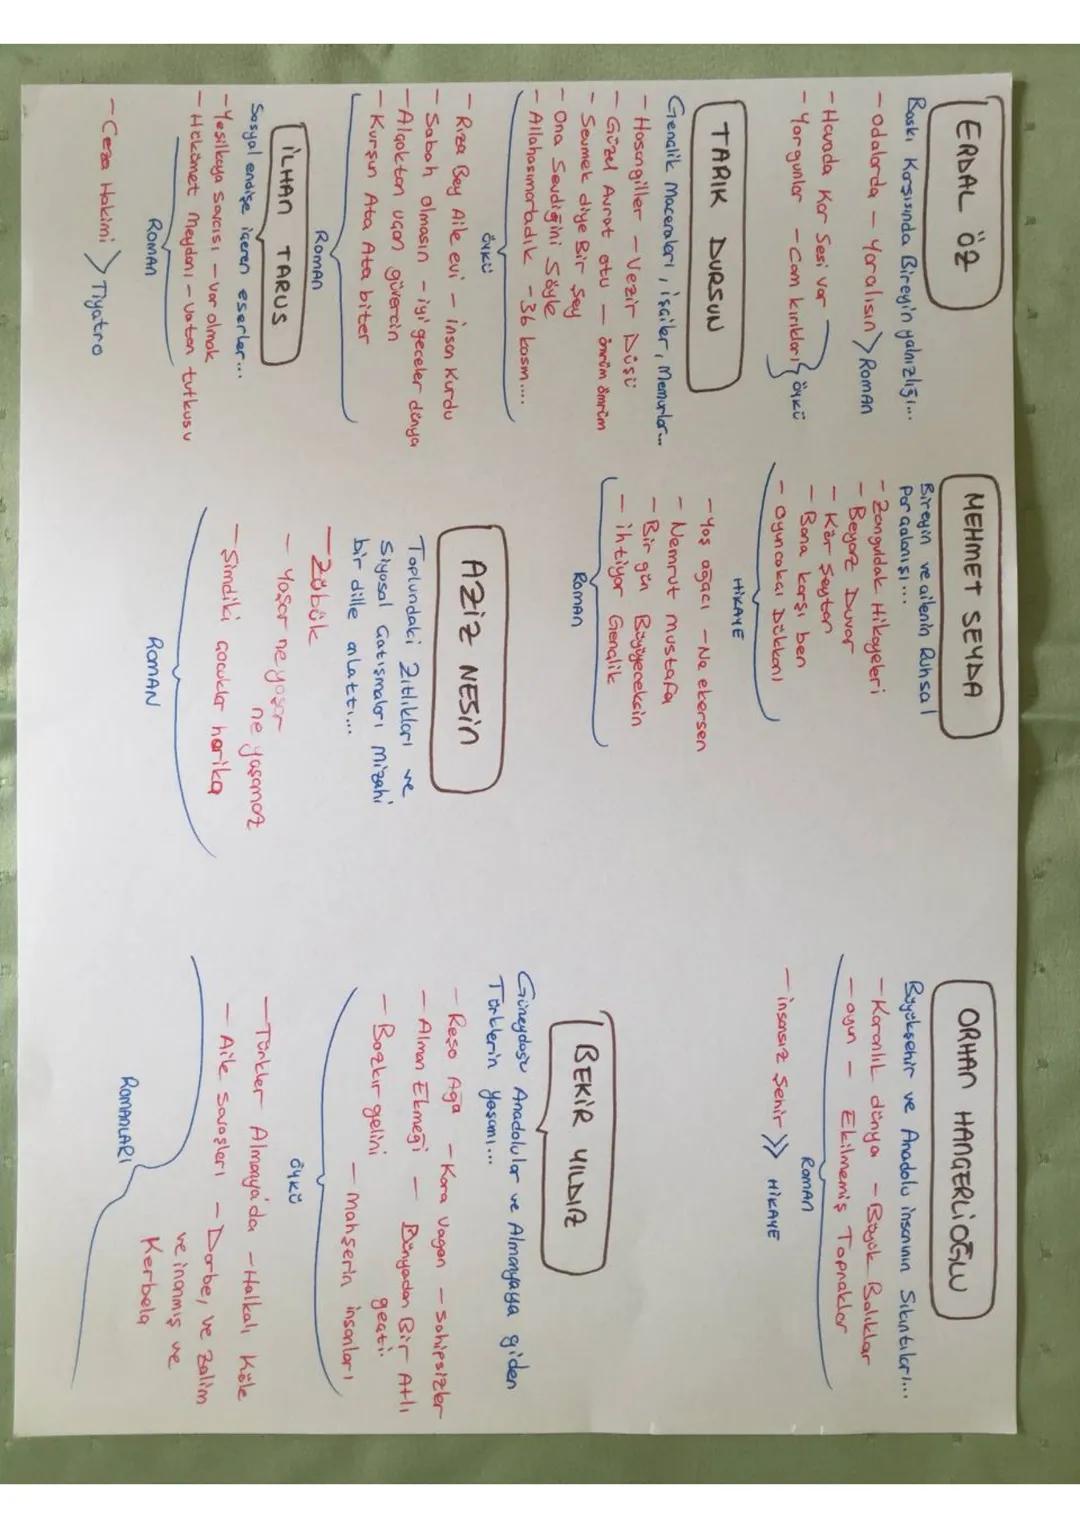 ERDAL ÖZ
Baskı Karşısında Bireyin yalnızlığı...
- Odalarda - Yaralısın > ROMAN
- Havada Kar Sesi var
- Yorgunlar - Cam kırıkları } ÖYKÜ
TARIK DURSUN
Gençlik Maceraları, işçiler, Memurlar...
- Hasangiller - Vezir Düşü
- Güzel Avrat otu - ömrüm ömrüm
- Sevmek diye Bir Şey
- Ona Sevdiğini Söyle
- Allahasımarladık - 36 kısım....
ÖYKÜ
- Rıza Bey Aile evi - insan Kurdu
- Sabah olmasın - iyi geceler dünya
- Alçaktan uçan güvercin
- Kurşun Ata Ata biter
ROMAN
İLHAN TARUS
Sosyal endişe içeren eserler...
- Yeşilkaya Savcısı - Var olmak
- Hükümet Meydanı - Vatan tutkusu
ROMAN
- Ceza Hakimi > Tiyatro
MEHMET SEYDA
Bireyin ve ailenin Ruhsal
Parçalanışı...
- Zonguldak Hikayeleri
- Beyaz Duvar
- Kör Şeytan
- Bana karşı ben
- Oyuncakçı Dükkanı
HİKAYE
- Yaş ağacı - Ne ekersen
- Nemrut mustafa
- Bir gün Büyüyeceksin
- ihtiyar Gençlik
ROMAN
AZİZ NESİN
Toplundaki Zıtlıkları ve
Siyasal Çatışmaları Mizahi
bir dille alattı...
- Zübük
- Yaşar ne yaşar
ne yaşamaz
- Şimdiki çocuklar harika
ROMAN
ORHAN HANÇERLİOĞLU
Büyükşehir ve Anadolu insanının Sıkıntıları...
- Karanlık dünya - Büyük Balıklar
- oyun - Ekilmemiş Topraklar
ROMAN
- insansız Şehir >> HİKAYE
BEKİR YILDIZ
Güneydoğu Anadolular ve Almanyaya giden
Türklerin yaşamı...
- Reşo Ağa - Kara Vagon - Sahipsizler
- Alman Ekmeği - Dünyadan Bir Atlı
geçti.
- Bozkır gelini - mahşerin insanları
ÖYKÜ
- Türkler Almanya'da - Halkalı Köle
- Aile savaşları - Darbe, ve Zalim
ve inanmış ve
Kerbela
ROMANLARI